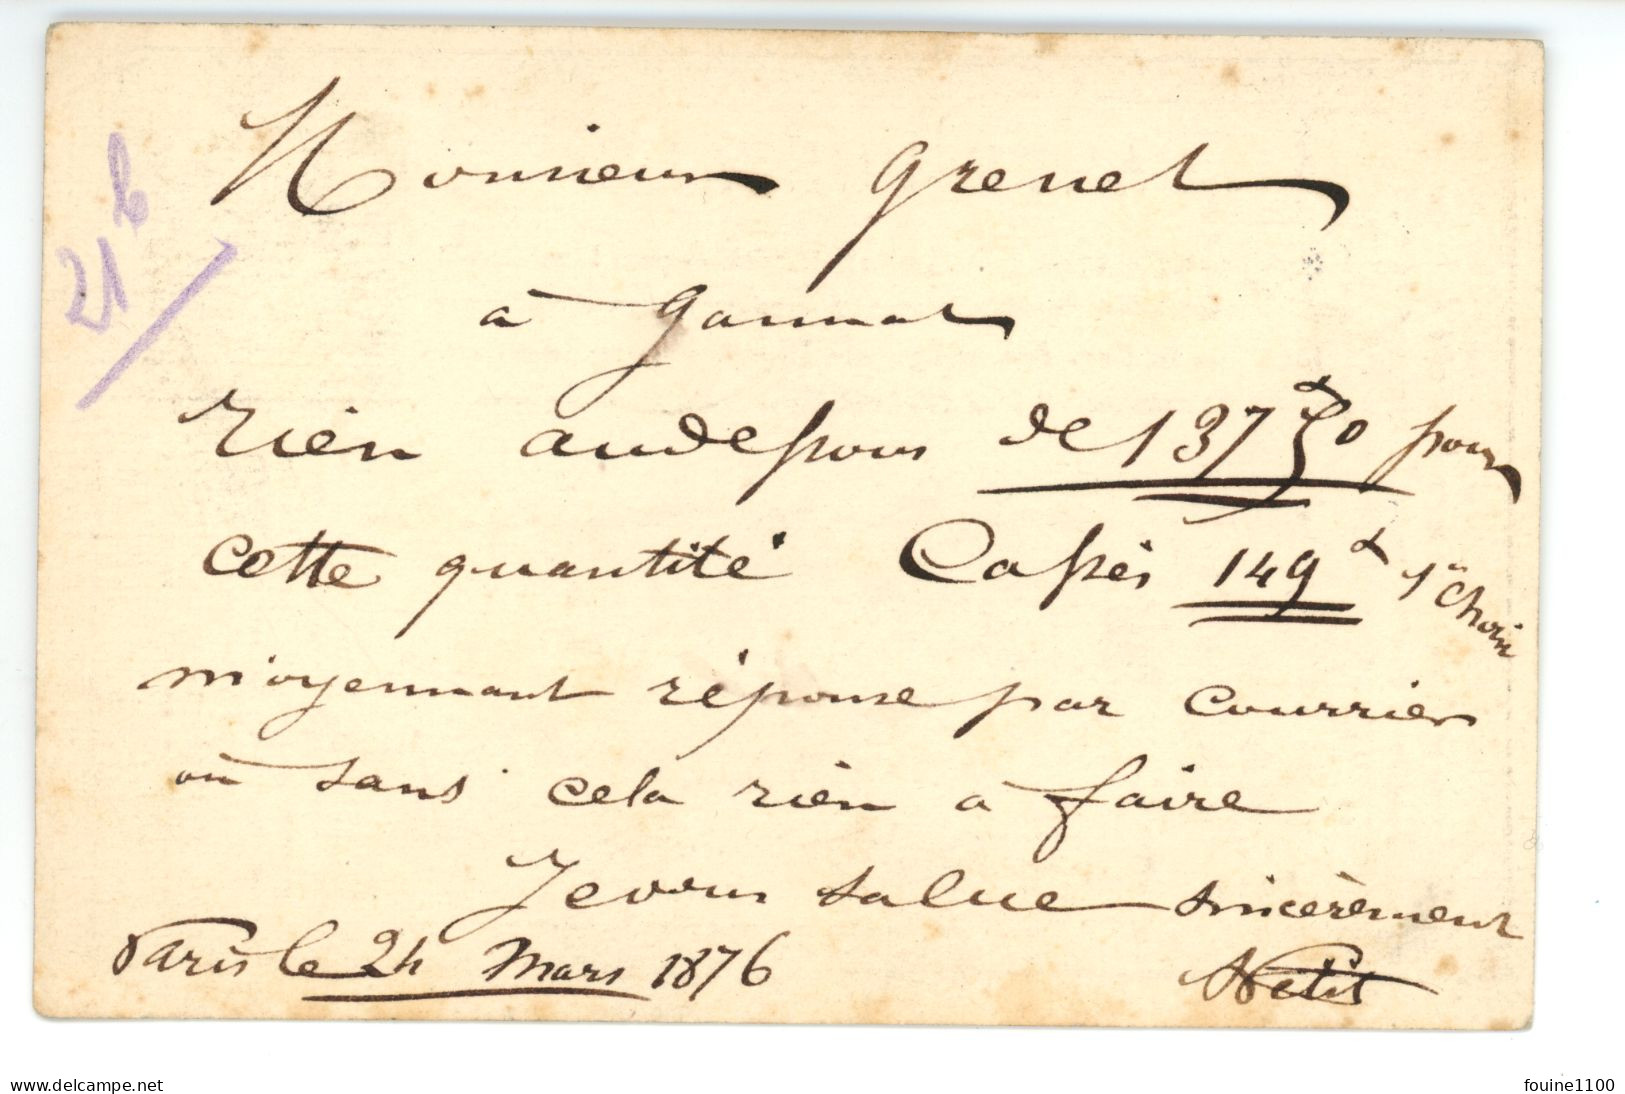 21 b
Monsieur Grenet
à Gannat
rien audessous de 137 50 pour
cette quantité Cafés 149 1er Choix
moyennant réponse par courrier
ou sans cela rien à faire
Je vous salue sincèrement
Paris le 24 Mars 1876
Petit
www.delcampe.net
fouine1100